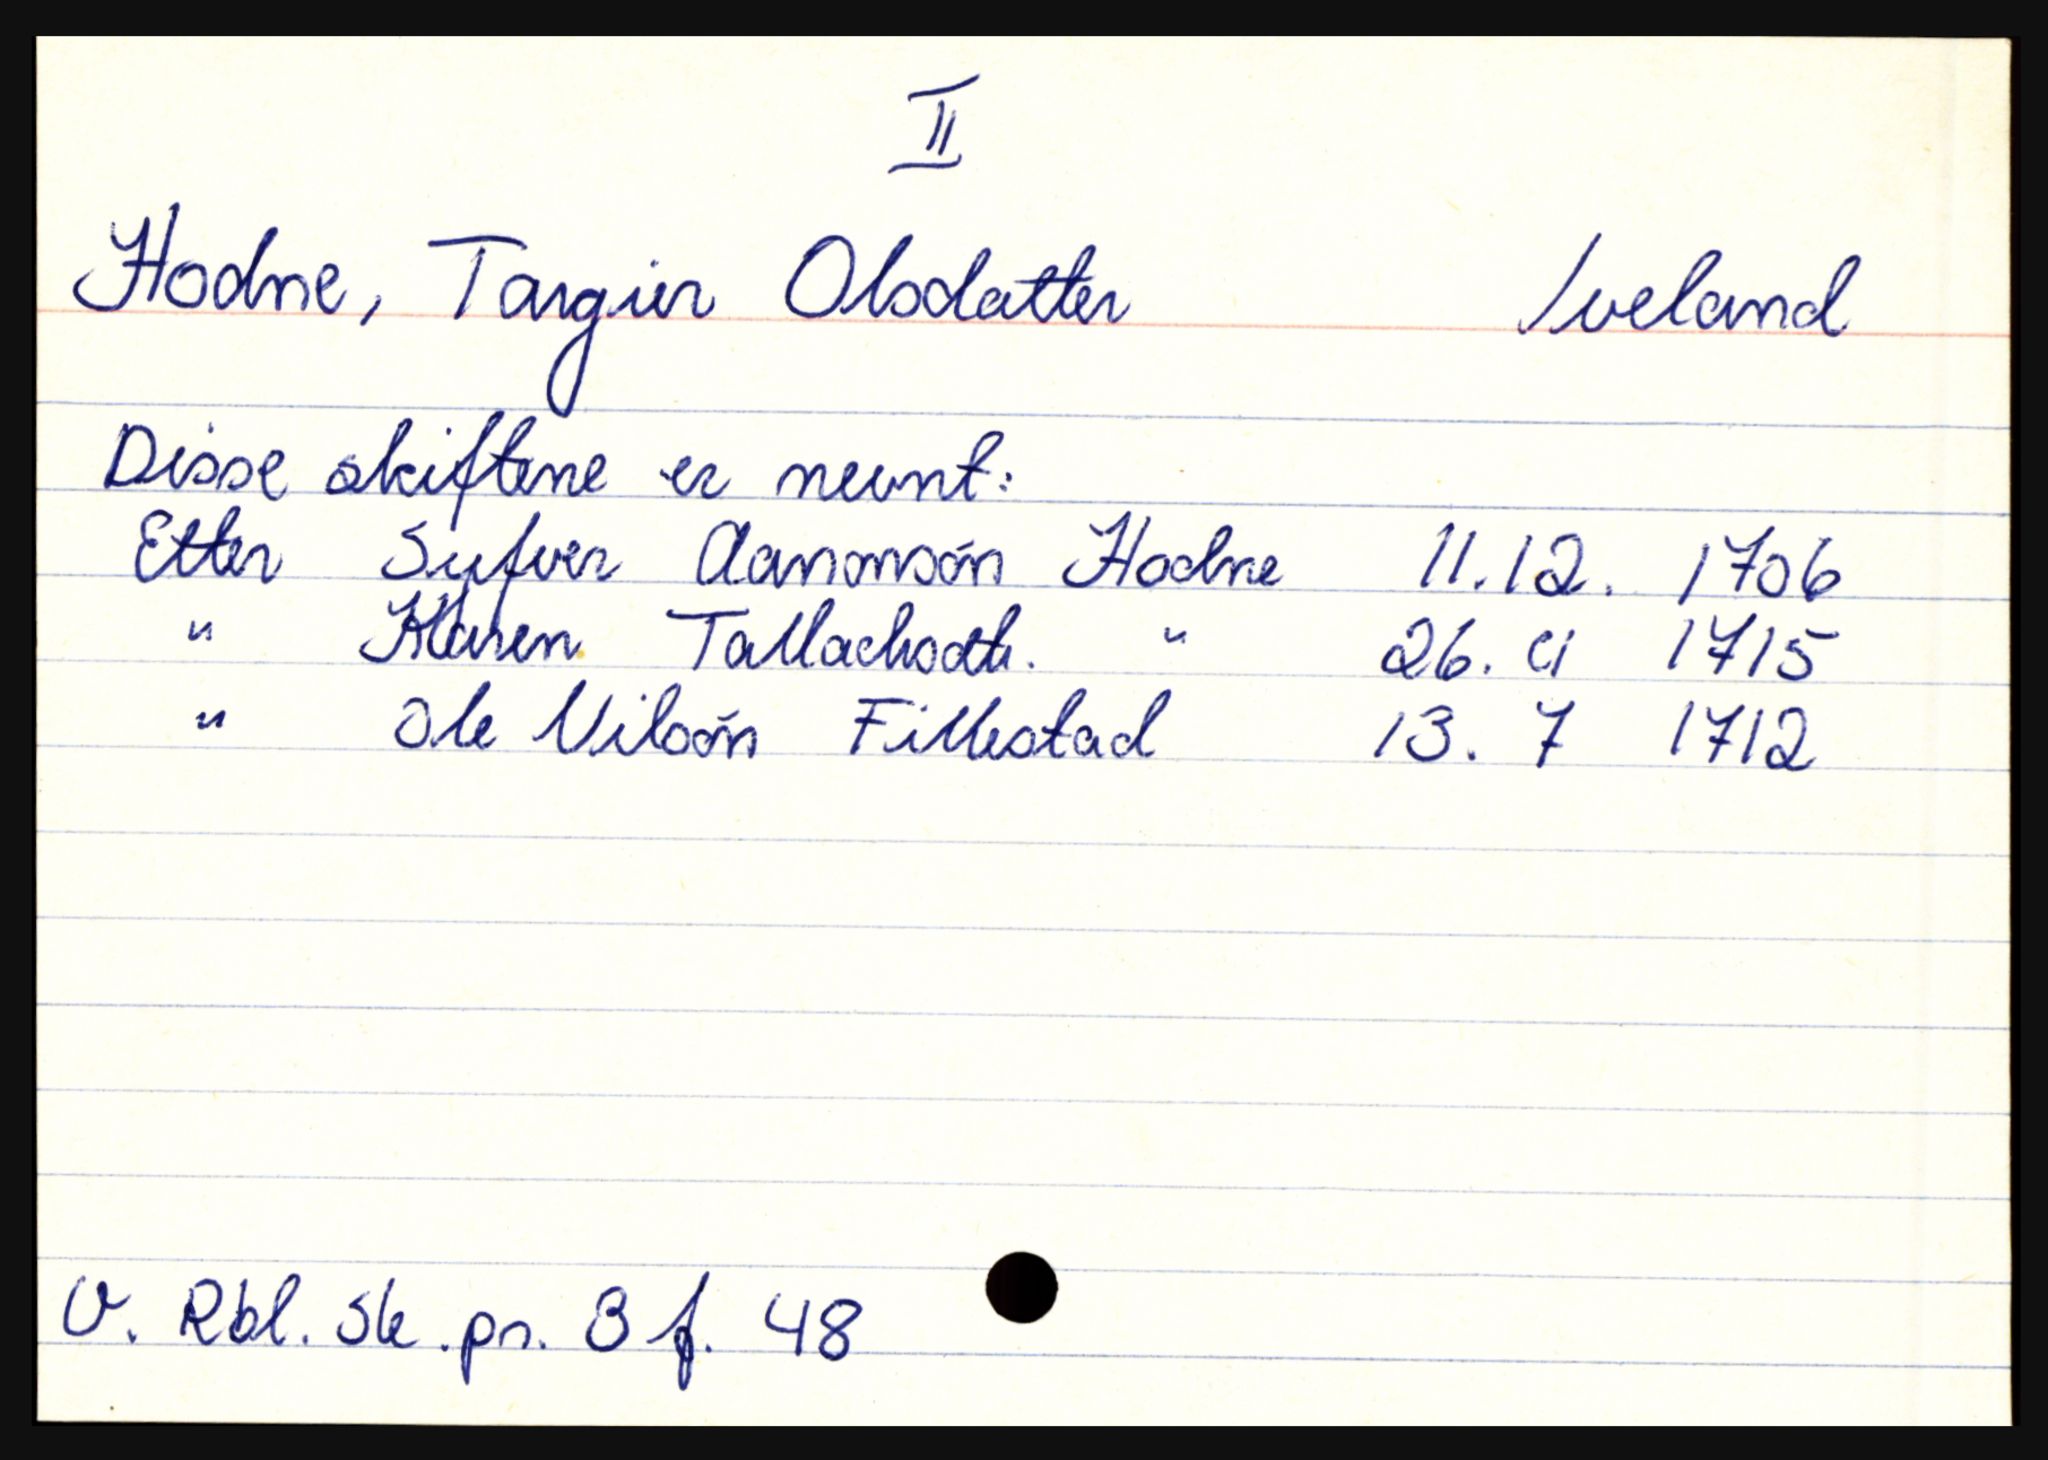 II
Hodne, Targier Olsdatter Iveland
Disse skiftene er nevnt:
Etter Syfver Aanonsøn Hodne 11.12. 1706
" Karen Tallachsdtr. " 26. 9 1715
" Ole Nilsøn Fillestad 13. 7 1712
V. Rbl. Sk. pr. 3 f. 48